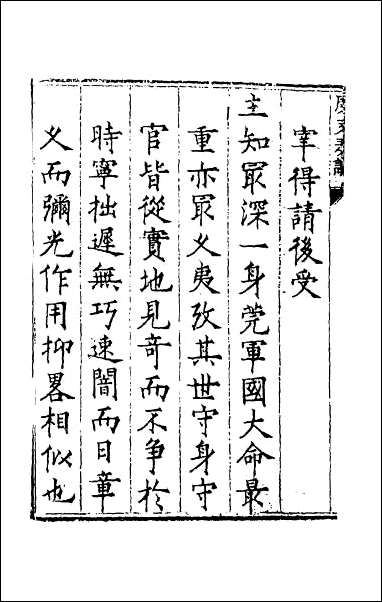 宰得請後受
主知冣深一身莞軍國大命最
重亦冣乂夷攷其世守身守
官皆從實地見奇而不争於
時寧拙遲無巧速闇而日章
乂而彌光作用抑畧相似也